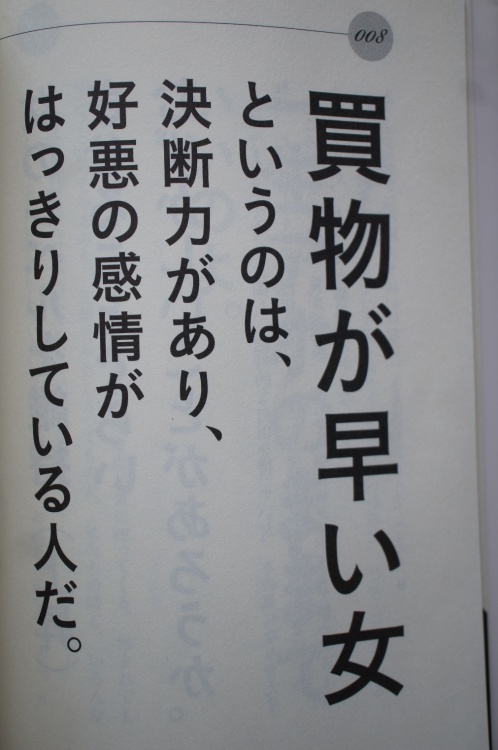 008
買物が早い女
というのは、
決断力があり、
好悪の感情が
はっきりしている人だ。